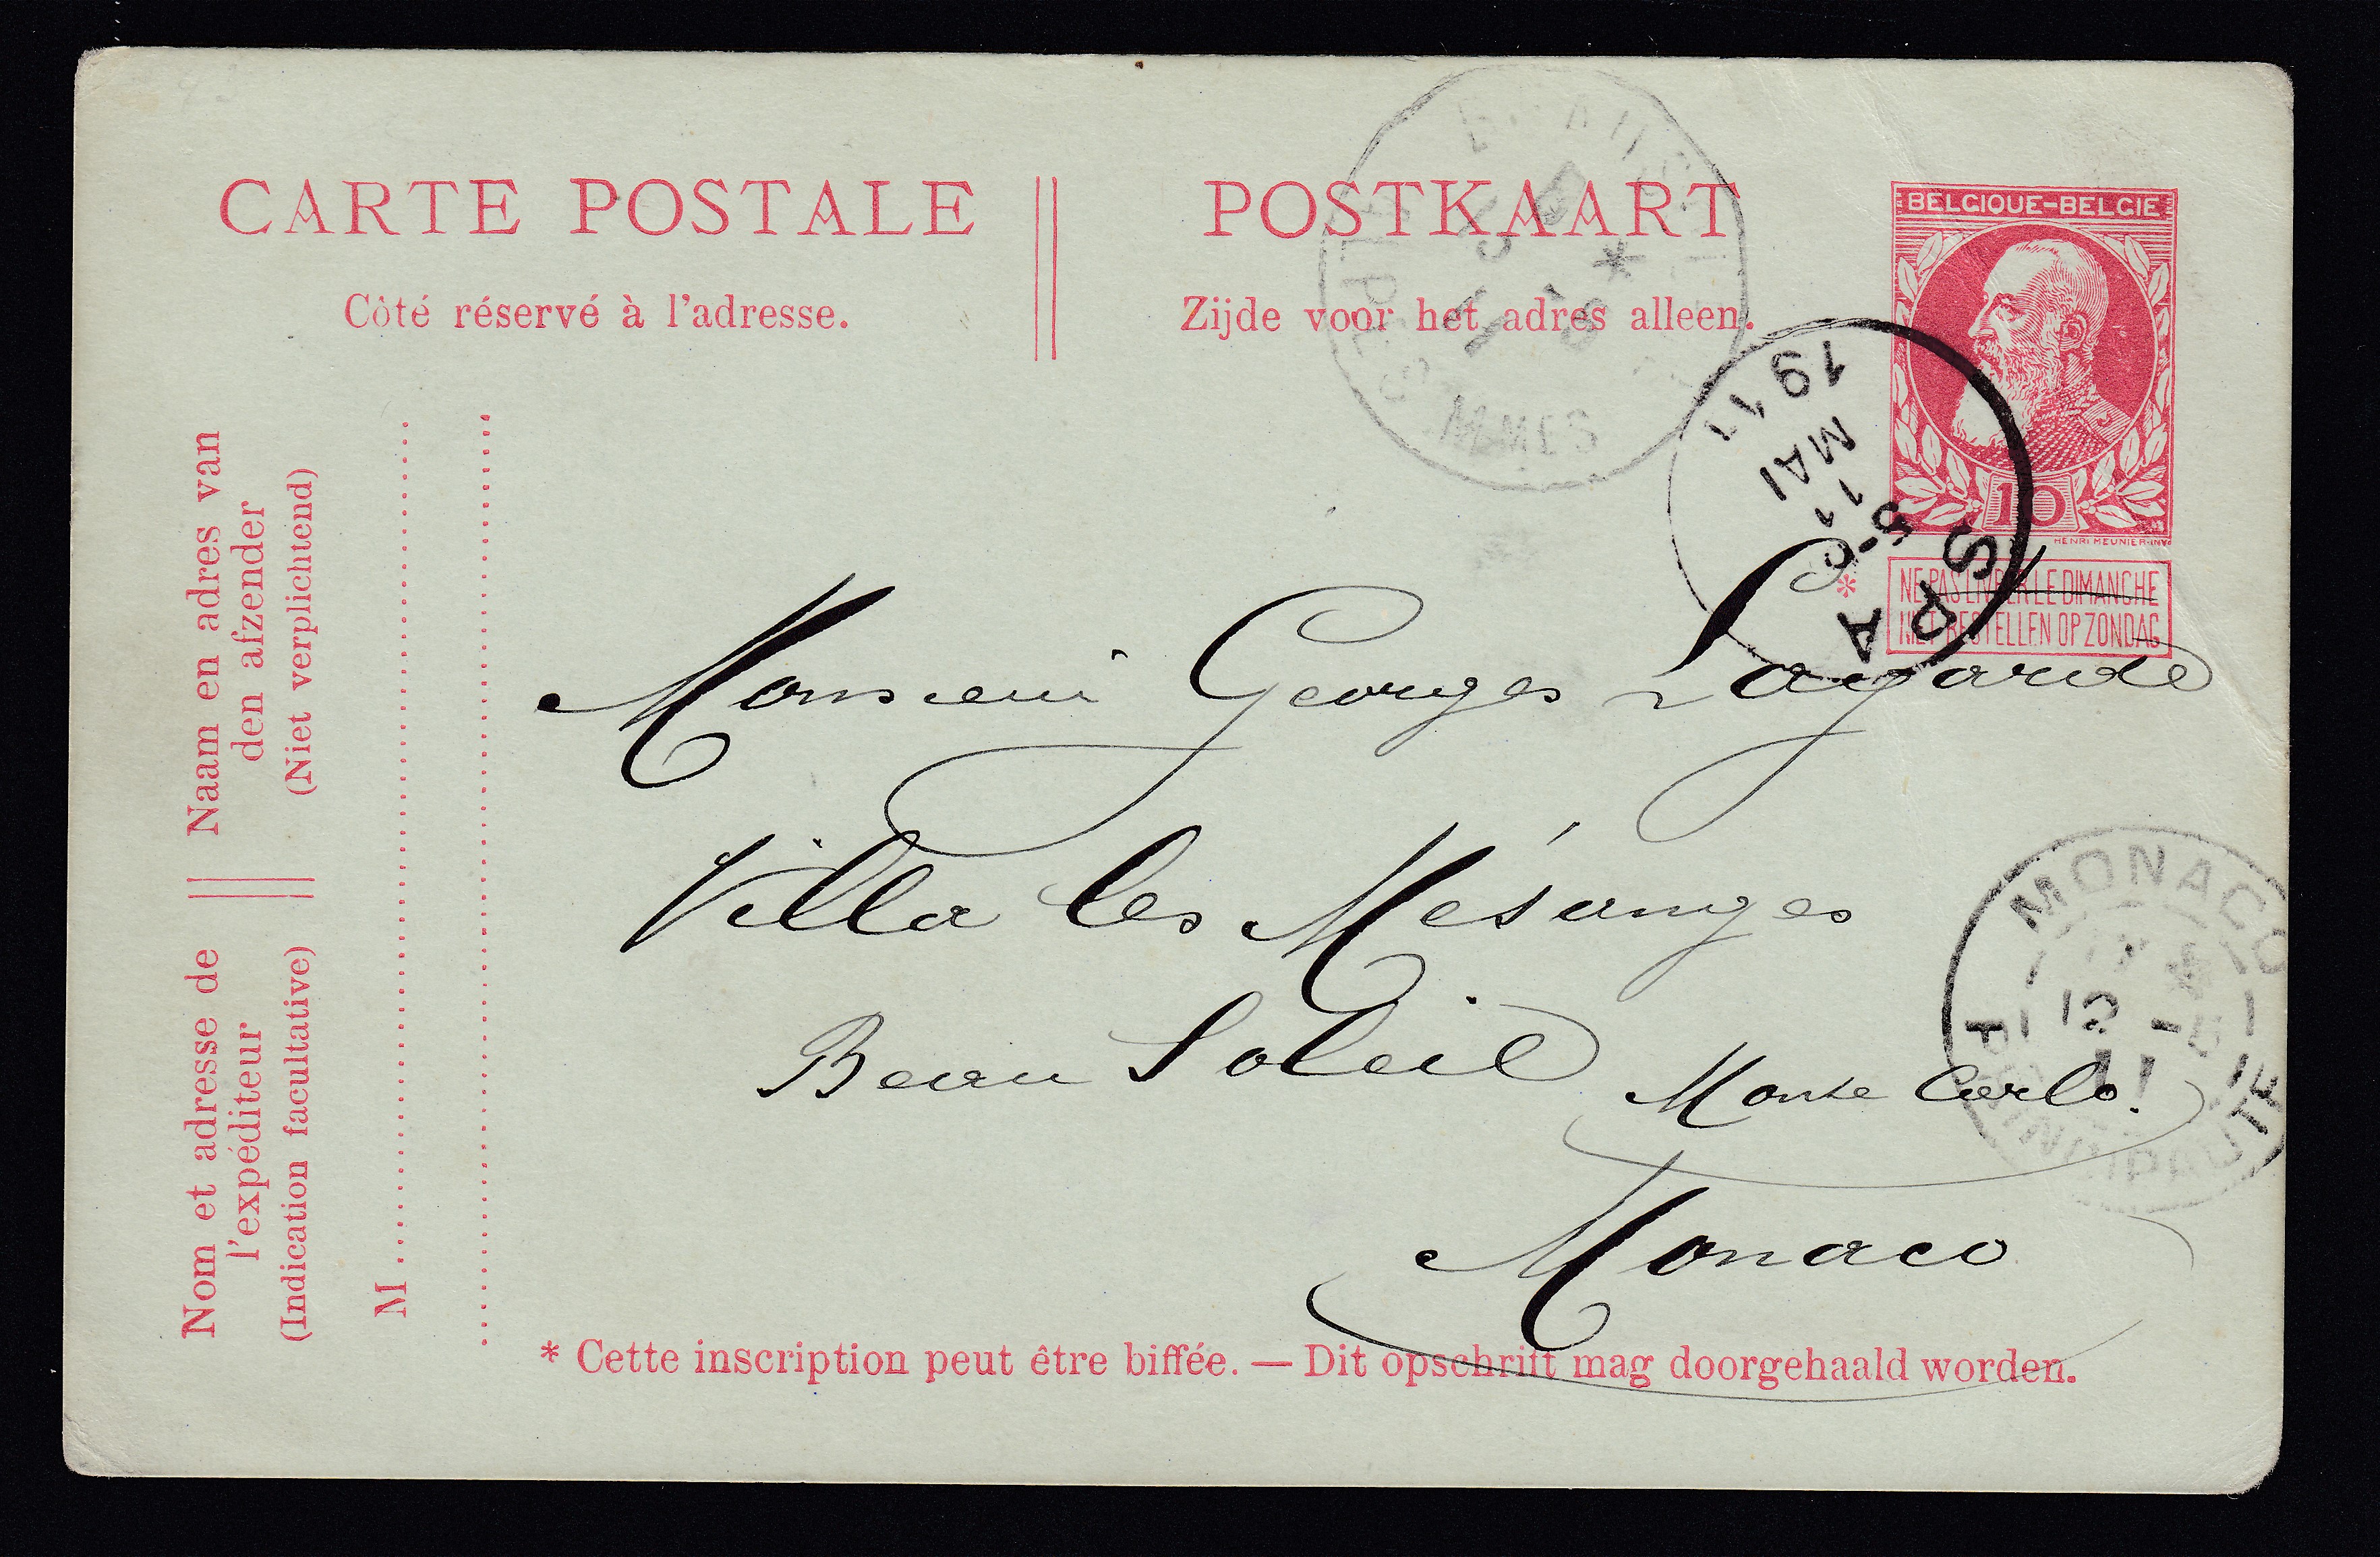 CARTE POSTALE
Côté réservé à l'adresse.
POSTKAART
Zijde voor het adres alleen.
BELGIQUE-BELGIE
10
HENRI MEUNIER·INV
* NE PAS LIVRER LE DIMANCHE
NIET BESTELLEN OP ZONDAG
SPA
5-6
11
MAI
1911
Naam en adres van
den afzender
(Niet verplichtend)
Nom et adresse de
l'expéditeur
(Indication facultative)
M
Monsieur Georges Lagarde
Villa les Mésanges
Beau Soleil Monte Carlo.
Monaco
MONACO
13 -5
11
PRINCIPAUTE
* Cette inscription peut être biffée. — Dit opschrift mag doorgehaald worden.